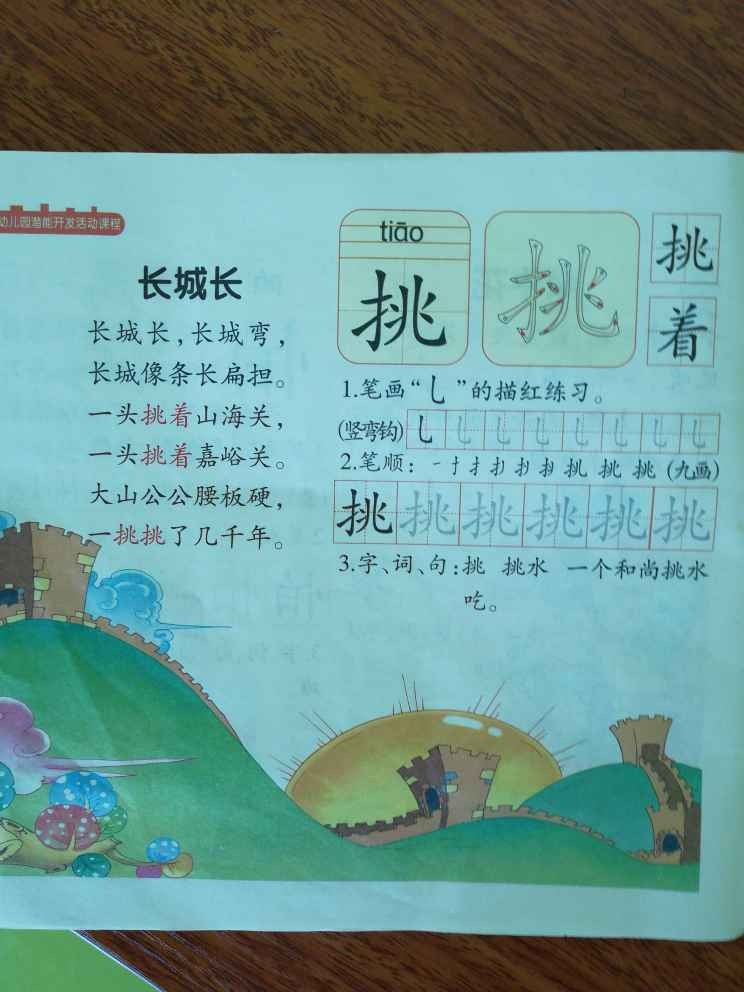 幼儿园潜能开发活动课程
长城长
长城长，长城弯，
长城像条长扁担。
一头挑着山海关，
一头挑着嘉峪关。
大山公公腰板硬，
一挑挑了几千年。
tiāo
挑 挑 挑
着
1.笔画“乚”的描红练习。
(竖弯钩) 乚 乚 乚 乚 乚 乚 乚 乚
2.笔顺： 挑 挑 (九画)
挑 挑 挑 挑 挑 挑
3.字、词、句：挑 挑水 一个和尚挑水
吃。